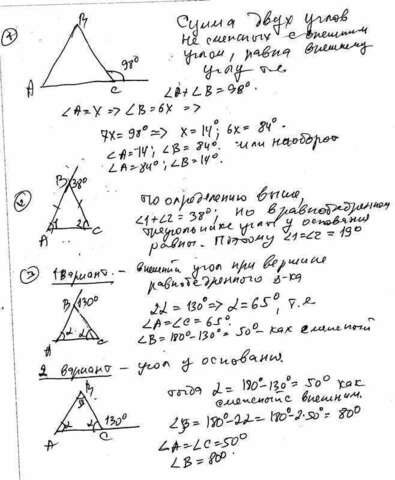 1
Сумма двух углов
не смежных с внешним
углом, равна внешнему
углу т.е.
B
98°
A
C
∠A+∠B=98°
∠A=X => ∠B=6X =>
7X=98° => X=14°; 6X=84°
∠A=14°; ∠B=84° или наоборот
∠A=84°; ∠B=14°
2
B
38°
A
1
2
C
По определению выше,
∠1+∠2=38°, но в равнобедренном
треугольнике углы у основания
равны. Поэтому ∠1=∠2=19°
3
1 вариант - внешний угол при вершине
равнобедренного Δ-ка
B
130°
A
α
α
C
2α=130° => α=65°, т.е
∠A=∠C=65°
∠B=180°-130°=50° - как смежный
2 вариант - угол у основания
B
β
A
α
α
130°
C
тогда α=180°-130°=50° как
смежный с внешним.
∠B=180°-2α=180°-2·50°=80°
∠A=∠C=50°
∠B=80°